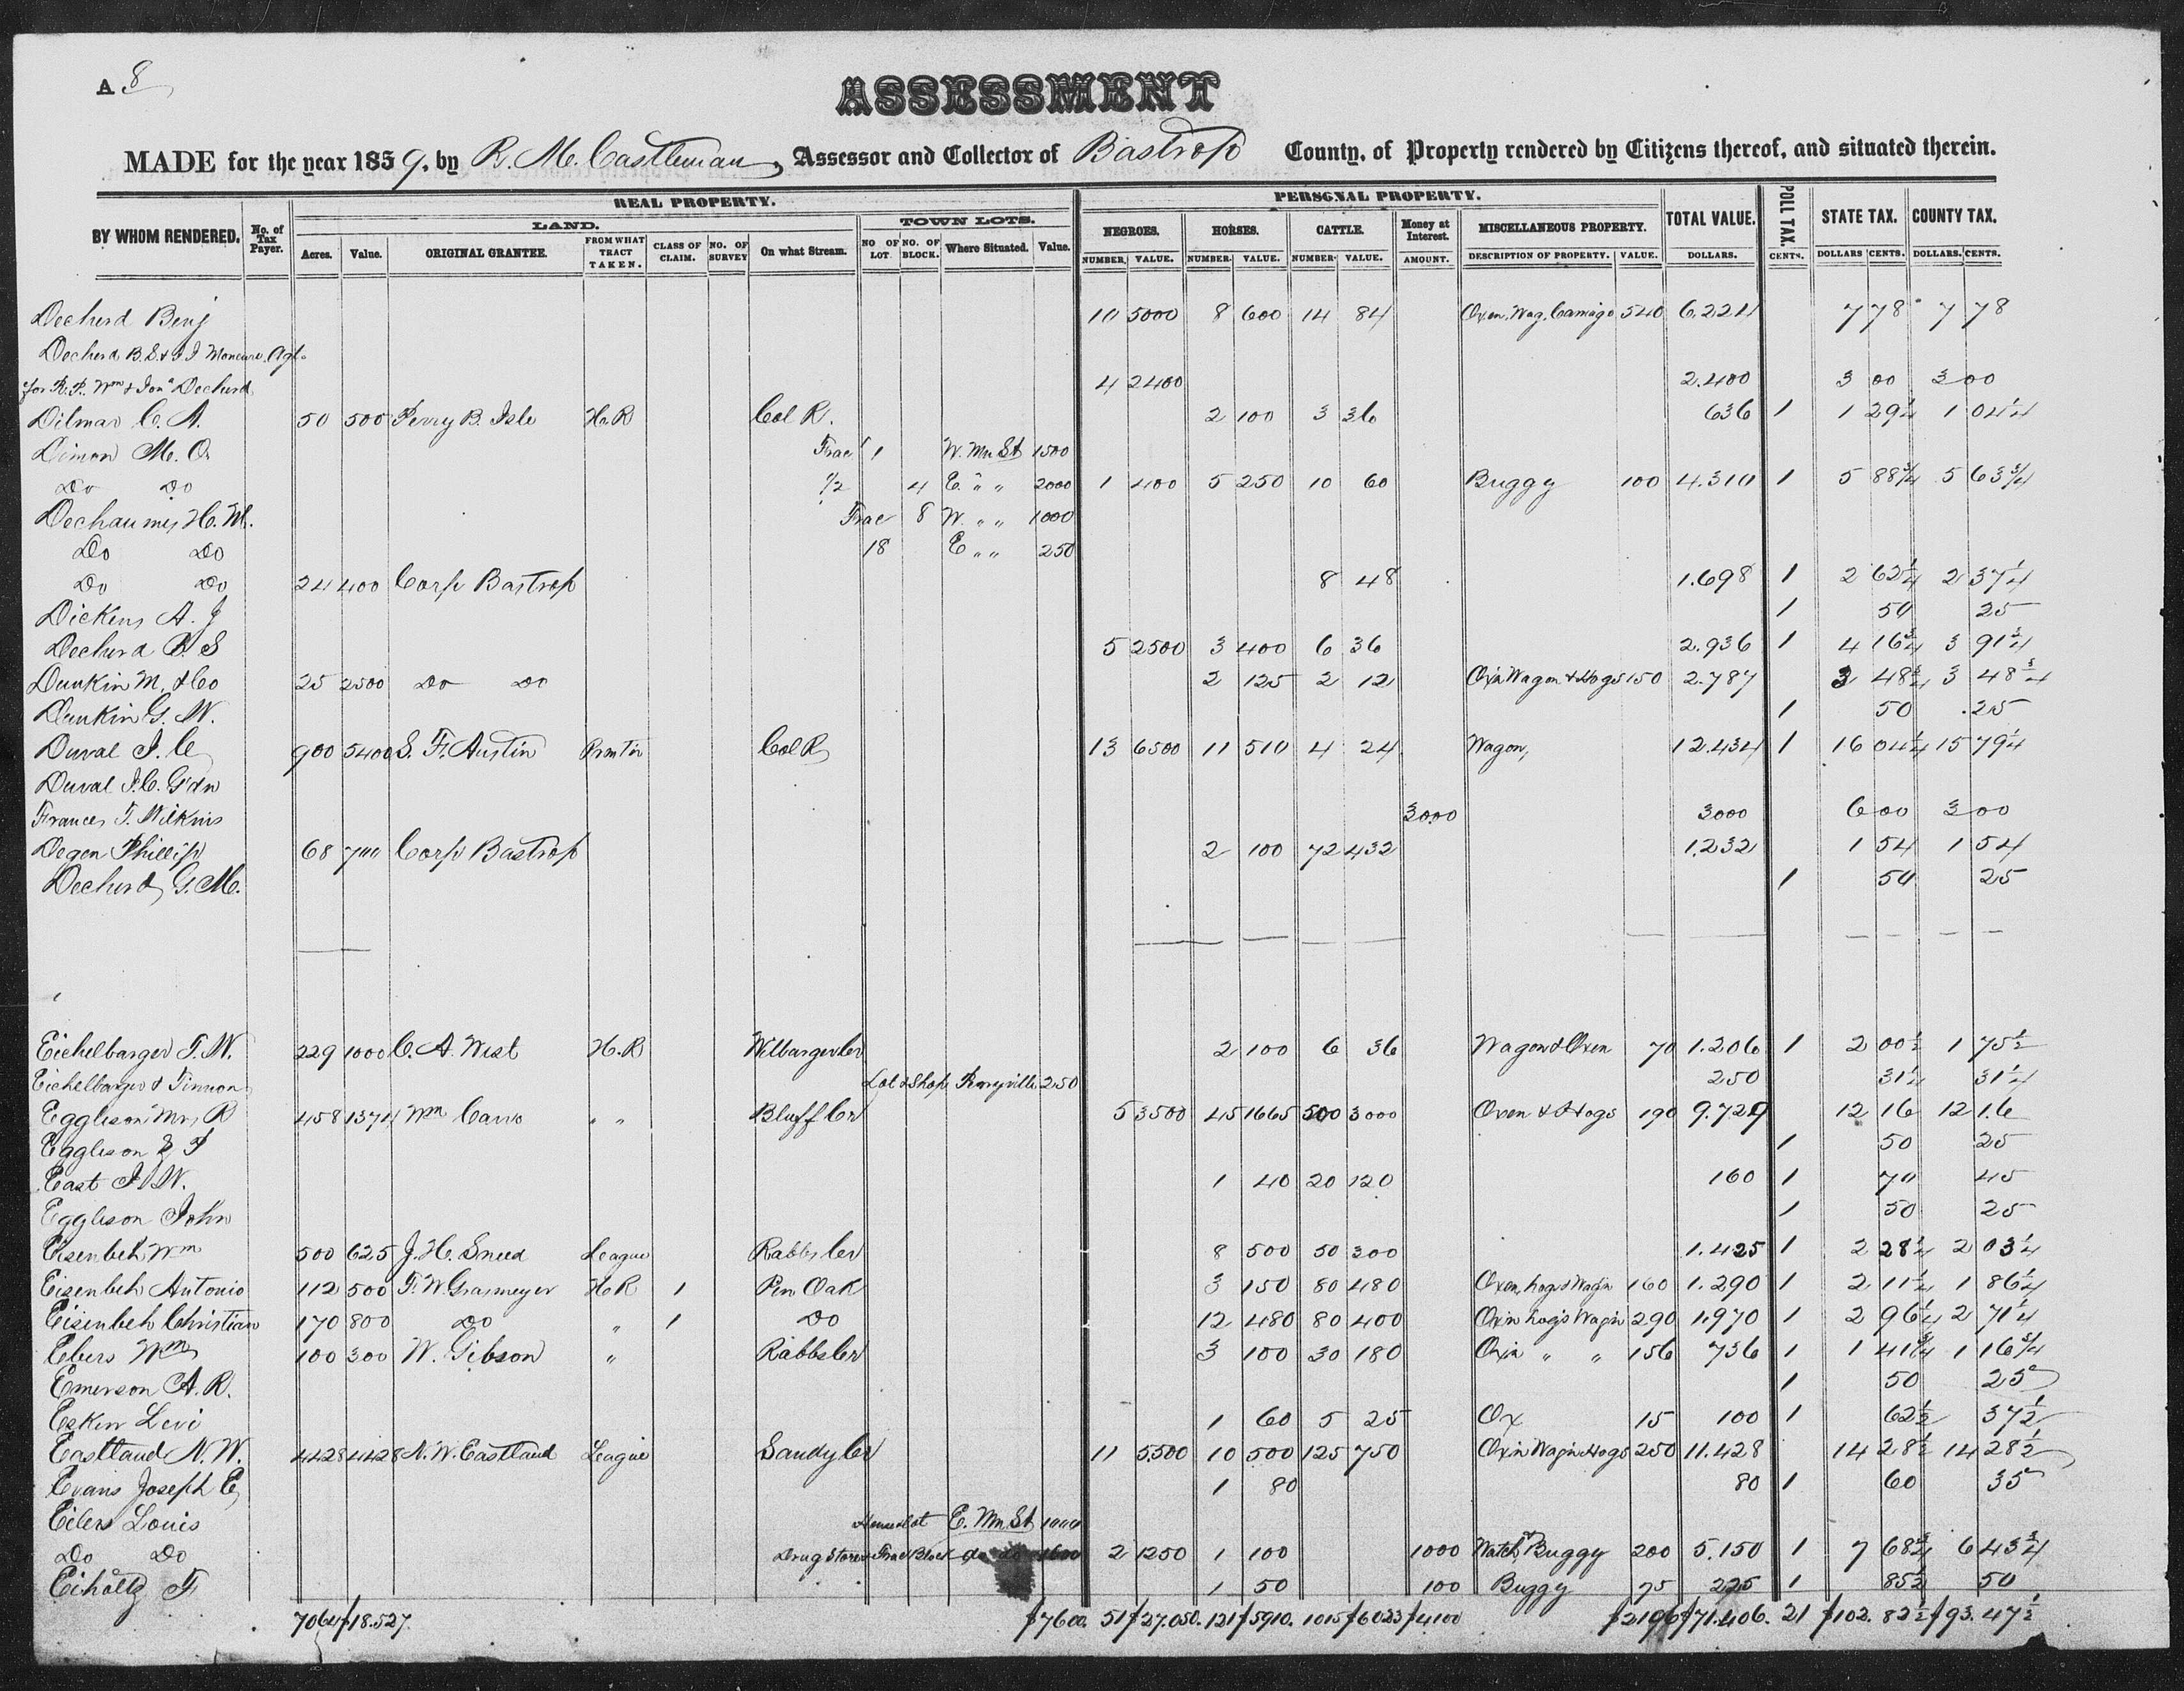 A 8
ASSESSMENT
MADE for the year 1859, by R. M. Castleman, Assessor and Collector of Bastrop County, of Property rendered by Citizens thereof, and situated therein.
REAL PROPERTY. PERSONAL PROPERTY.
LAND. TOWN LOTS. NEGROES. HORSES. CATTLE. Money at Interest. MISCELLANEOUS PROPERTY. TOTAL VALUE. POLL TAX. STATE TAX. COUNTY TAX.
BY WHOM RENDERED. No. of Tax Payer. Acres. Value. ORIGINAL GRANTEE. FROM WHAT TRACT TAKEN. CLASS OF CLAIM. NO. OF SURVEY On what Stream. NO OF LOT. NO. OF BLOCK. Where Situated. Value. NUMBER. VALUE. NUMBER. VALUE. NUMBER. VALUE. AMOUNT. DESCRIPTION OF PROPERTY. VALUE. DOLLARS. CENTS. DOLLARS CENTS. DOLLARS. CENTS.
Decherd Benj 10 5000 8 600 14 84 Oxen, Wag, Carriage 540 6.224 7 78 7 78
Decherd B. S. & J. J. Moncure. Agt.
for R. P. Wm & Jon Decherd 4 2400 2.400 3 00 3 00
Dilmar C. A. 50 500 Perry B. Isle H.R Col R. 2 100 3 36 636 1 1 29¼ 1 04¼
Dimon M. O. Frac 1 W. Mn St 1500
Do Do 1/2 4 E. " " 2000 1 400 5 250 10 60 Buggy 100 4.310 1 5 88¾ 5 63¾
Dechaumes H. M. Frac 8 W. " " 1000
Do Do 18 E " " 250
Do Do 24 400 Corp Bastrop 8 48 1.698 1 2 62¼ 2 37¼
Dickens A. J 1 50 25
Decherd B. S 5 2500 3 400 6 36 2.936 1 4 16¾ 3 91¾
Dunkin M. & Co 25 2500 Do Do 2 125 2 12 Oxin Wagon & Hogs 150 2.787 3 48¾ 3 48¾
Dunkin G. W. 1 50 .25
Duval J. C 900 5400 S. F. Austin Col R 13 6500 11 510 4 24 Wagon, 12.434 1 16 04¼ 15 79¼
Duval J. C. G'dn
Frances T. Wilkins 3000 3000 6 00 3 00
Degen Phillip 68 700 Corp Bastrop 2 100 72 432 1.232 1 54 1 54
Decherd G. M. 1 50 25
Eichelbarger T. W. 229 1000 C. A. West H.R Wilbarger Cr 2 100 6 36 Wagon & Oxen 70 1.206 1 2 00½ 1 75½
Eichelbarger & Tinnon Lot & Shop Perryville 250 250 31¼ 31¼
Eggleson Mrs R 458 1374 Wm Carro " " Bluff Cr 5 3500 45 1665 500 3000 Oxen & Hogs 190 9.729 12 16 12 16
Eggleson E J 1 50 25
East J. W. 1 40 20 120 160 1 70 45
Eggleson John 1 50 25
Eisenbeh Wm 500 625 J. H. Sneed League Rabbs Cr 8 500 50 300 1.425 1 2 28¼ 2 03¼
Eisenbeh Antonio 112 500 F. W. Grasmeyer H R 1 Pin Oak 3 150 80 480 Oxen, hogs & Wagin 160 1.290 1 2 11¼ 1 86¼
Eisenbeh Christian 170 800 Do " 1 Do 12 480 80 400 Oxin hogs Wagin 290 1970 1 2 96¼ 2 71¼
Ebers Wm 100 300 W. Gibson " Rabbs Cr 3 100 30 180 Oxin " " 156 736 1 1 41¾ 1 16¾
Emerson A. R. 1 50 25
Eskin Levi 1 60 5 25 Ox 15 100 1 62½ 37½
Eastland N. W. 4428 4428 N. W. Eastland League Sandy Cr 11 5500 10 500 125 750 Oxin Wagin Hogs 250 11.428 14 28½ 14 28½
Evans Joseph E 1 80 80 1 60 35
Eilers Louis House & Lot E. Mn. St 1000
Do Do Drug Store Frac Block do do 1600 2 1250 1 100 1000 Watch & Buggy 200 5.150 1 7 68¾ 6 43¾
Eiholtz F 1 50 100 Buggy 75 225 1 85½ 50
7064 $18.527. $7600. 51 $27.050. 121 $5910. 1015 $6023 $4100 $2196 $71.406. 21 $102. 82½ $93. 47½